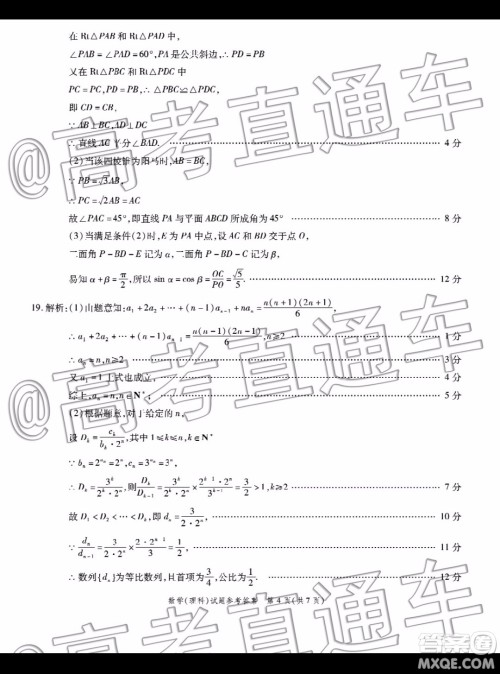 在 Rt△PAB 和 Rt△PAD 中,
∠PAB=∠PAD=60°,PA是公共斜边,∴PD=PB
又在 Rt△PBC 和 Rt△PDC 中
PC=PC,PD=PB,∴△PBC≌△PDC,
即 CD=CB.
∵AB⊥BC,AD⊥DC
∴直线 AC⊥BD. 4分
(2)当该四棱锥为阳马时,AB=BC,
∵PB=√3AB,
∴PC=√2AB=AC
故∠PAC=45°,即直线 PA 与平面 ABCD 所成角为 45° 8分
(3)当满足条件(2)时,E 为 PA 中点,设 AC 和 BD 交于点 O,
二面角 P-BD-E 记为 α,二面角 P-BD-C 记为 β,
易知 α+β=π/2,所以 sin α=cos β=OC/PC=√5/5. 12分
19.解析:(1)由题意知:a₁+2a₂+⋯+(n-1)aₙ₋₁+naₙ=n(n+1)(2n+1)/6,
∴a₁+2a₂+⋯+(n-1)aₙ₋₁=n(n-1)(2n-1)/6,n≥2 1分
∴aₙ=n,n≥2 3分
又 a₁=1 上式也成立, 4分
综上,aₙ=n,n∈N*; 5分
(2)根据题意,对于给定的 n,
设 Dₖ=cₖ/(bₖ·2ⁿ),其中 1≤k≤n,k∈N*
∵bₙ=2^(aₙ)=2ⁿ,cₙ=3^(aₙ)=3ⁿ,
∴Dₖ=3ᵏ/(2ᵏ·2ⁿ),则Dₖ/Dₖ₋₁=3ᵏ/(2ᵏ·2ⁿ)×(2ᵏ⁻¹·2ⁿ)/3ᵏ⁻¹=3/2>1,k≥2 7分
故 D₁<D₂<⋯<Dₖ,即 dₙ=3/(2·2ⁿ), 10分
∵dₙ/dₙ₋₁=3/(2·2ⁿ)×(2·2ⁿ⁻¹)/3=1/2, 11分
∴数列{dₙ}为等比数列,且首项为3/4,公比为1/2. 12分
数学(理科)试题参考答案 第4页(共7页)
@高考直通车
@高考直通车
@高考直通车
答案圈
MXQE.COM